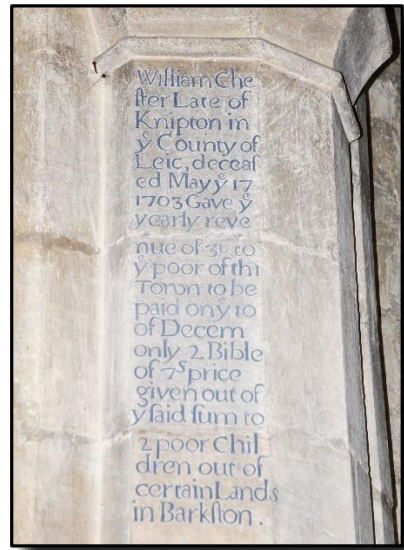 William Che
ſter Late of
Knipton in
yͤ County of
Leic, deceaſ
ed May yͤ 17
1703 Gave yͤ
yearly reve
nue of 3l. to
yͤ poor of thi
Toron to be
paid on yͤ 10
of Decem
only 2 Bible
of 7ˢ price
given out of
y ſaid ſum to
2 poor Chil
dren out of
certain Lands
in Barkſton.